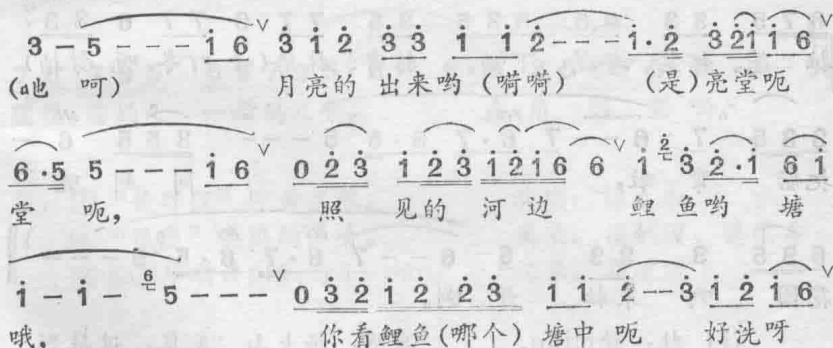 3 – 5 – – – i̇ 6 ∨ 3̇ i̇ 2̇ 3̇ 3̇ i̇ i̇ 2̇ – – – i̇ · 2̇ 3̇ 2̇ i̇ i̇ 6 ∨
(吔 呵) 月亮的 出来哟 (嗬嗬) (是)亮堂呃
6 · 5 5 – – – i̇ 6 ∨ 0 2̇ 3̇ i̇ 2̇ 3̇ i̇ 2̇ i̇ 6 6 ∨ i̇ 2̇ 3̇ 2̇ · i̇ 6 i̇
堂 呃, 照 见的 河 边 鲤 鱼哟 塘
i̇ – i̇ – 6 5 – – – ∨ 0 3̇ 2̇ i̇ 2̇ 2̇ 3̇ i̇ i̇ 2̇ – – 3̇ i̇ 2̇ i̇ 6 ∨
哦, 你看鲤鱼(哪个) 塘中 呃 好洗呀